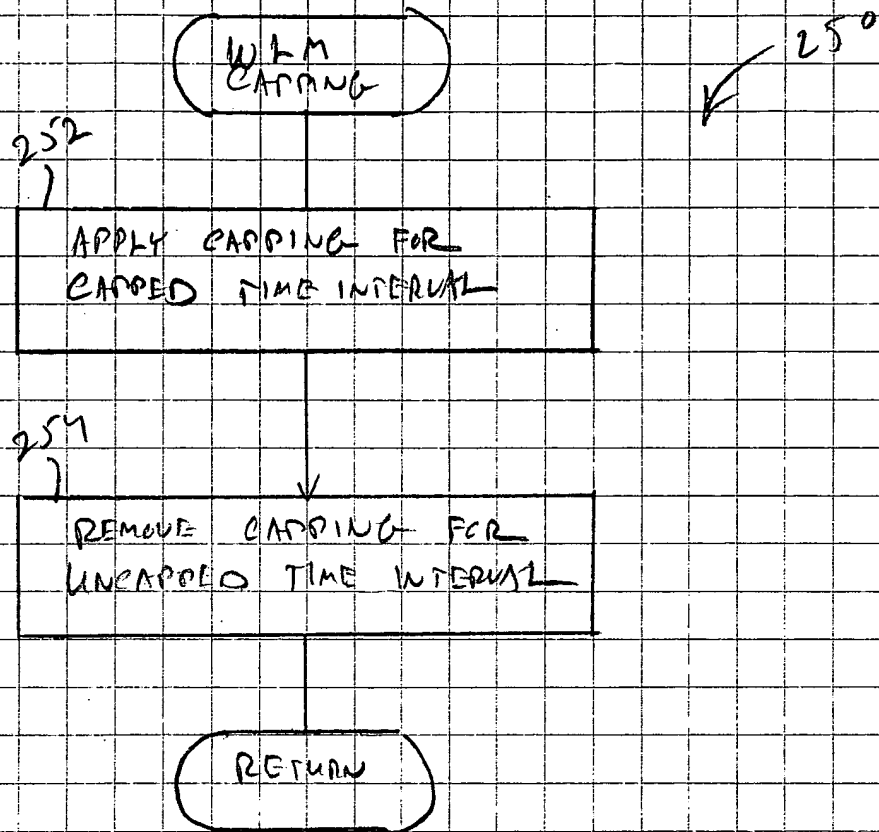 WLM
CAPPING
250
252
APPLY CAPPING FOR
CAPPED TIME INTERVAL
254
REMOVE CAPPING FOR
UNCAPPED TIME INTERVAL
RETURN